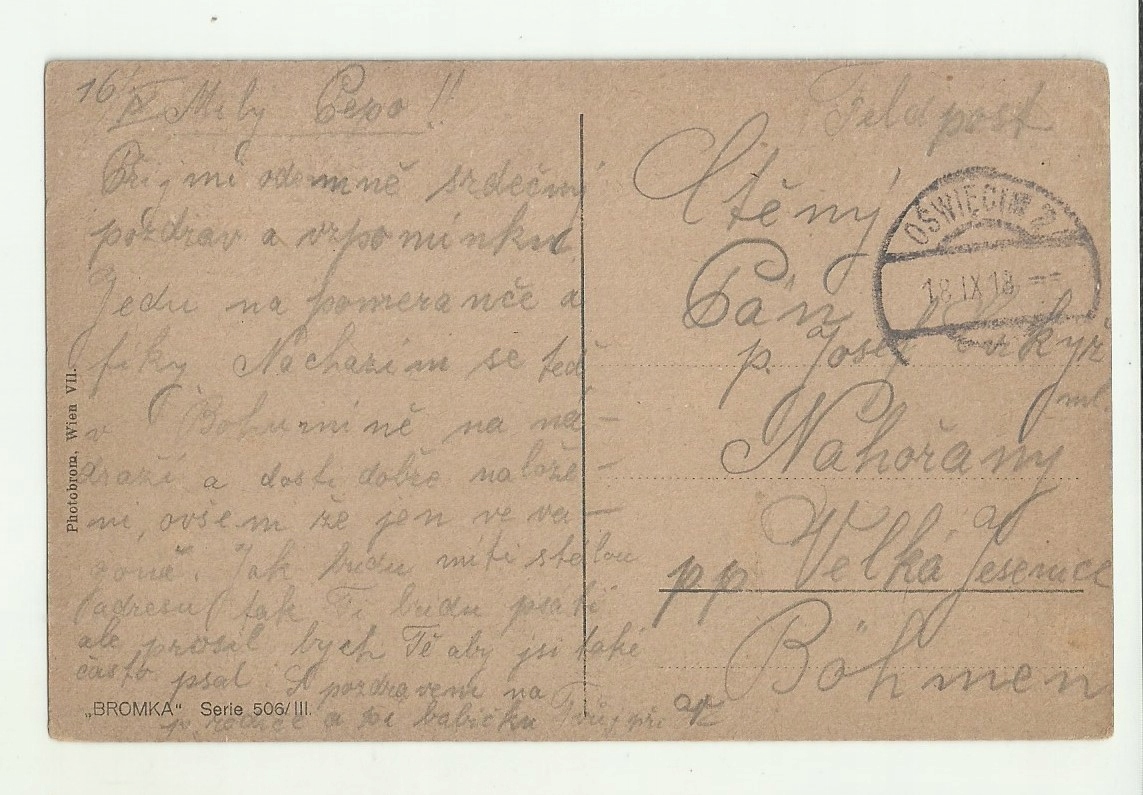 16/IX Milý Pepo!!
Přijmi odemně srdečný
pozdrav a vzpomínku
Jedu na pomeranče a
fíky Nacházím se teď
v Bohumíně na ná-
draží a dosti dobře nalože-
ni, ovšem že jen ve va-
goně. Jak budu míti stálou
adresu tak Ti budu psáti
ale prosil bych Tě aby jsi také
často psal. S pozdravem na
p. rodiče a babičku Tvůj
Photobrom, Wien VII.
„BROMKA“ Serie 506/III.
Feldpost
OŚWIĘCIM 2
18 IX 18
Ctěný
Pán
p. Josef
ml.
Nahořany
Velká Jesenice
pp
Böhmen